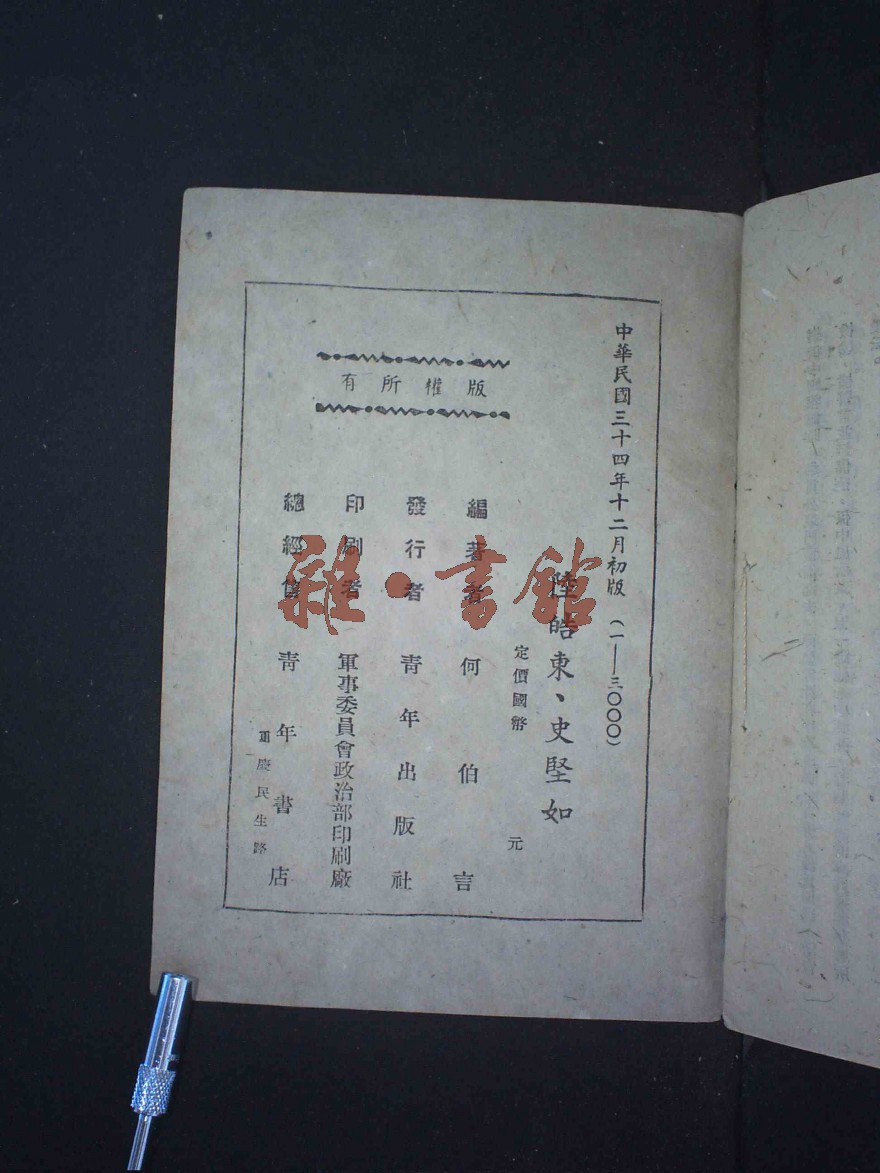 中華民國三十四年十二月初版 (一——三〇〇〇)
陸皓東、史堅如
定價國幣 元
編著者 何伯言
發行者 青年出版社
印刷者 軍事委員會政治部印刷廠
總經售 青年書店
重慶民生路
版權所有
雜·書館